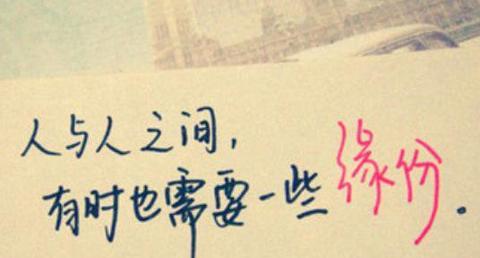 人与人之间，
有时也需要一些缘份.